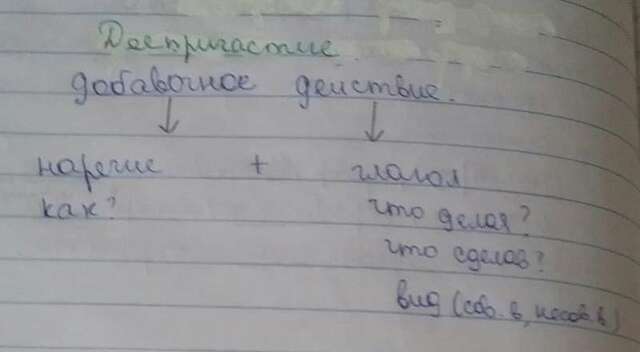 Деепричастие.
добавочное действие.
наречие + глагол
как? что делая?
что сделав?
вид (сов. в, несов. в)